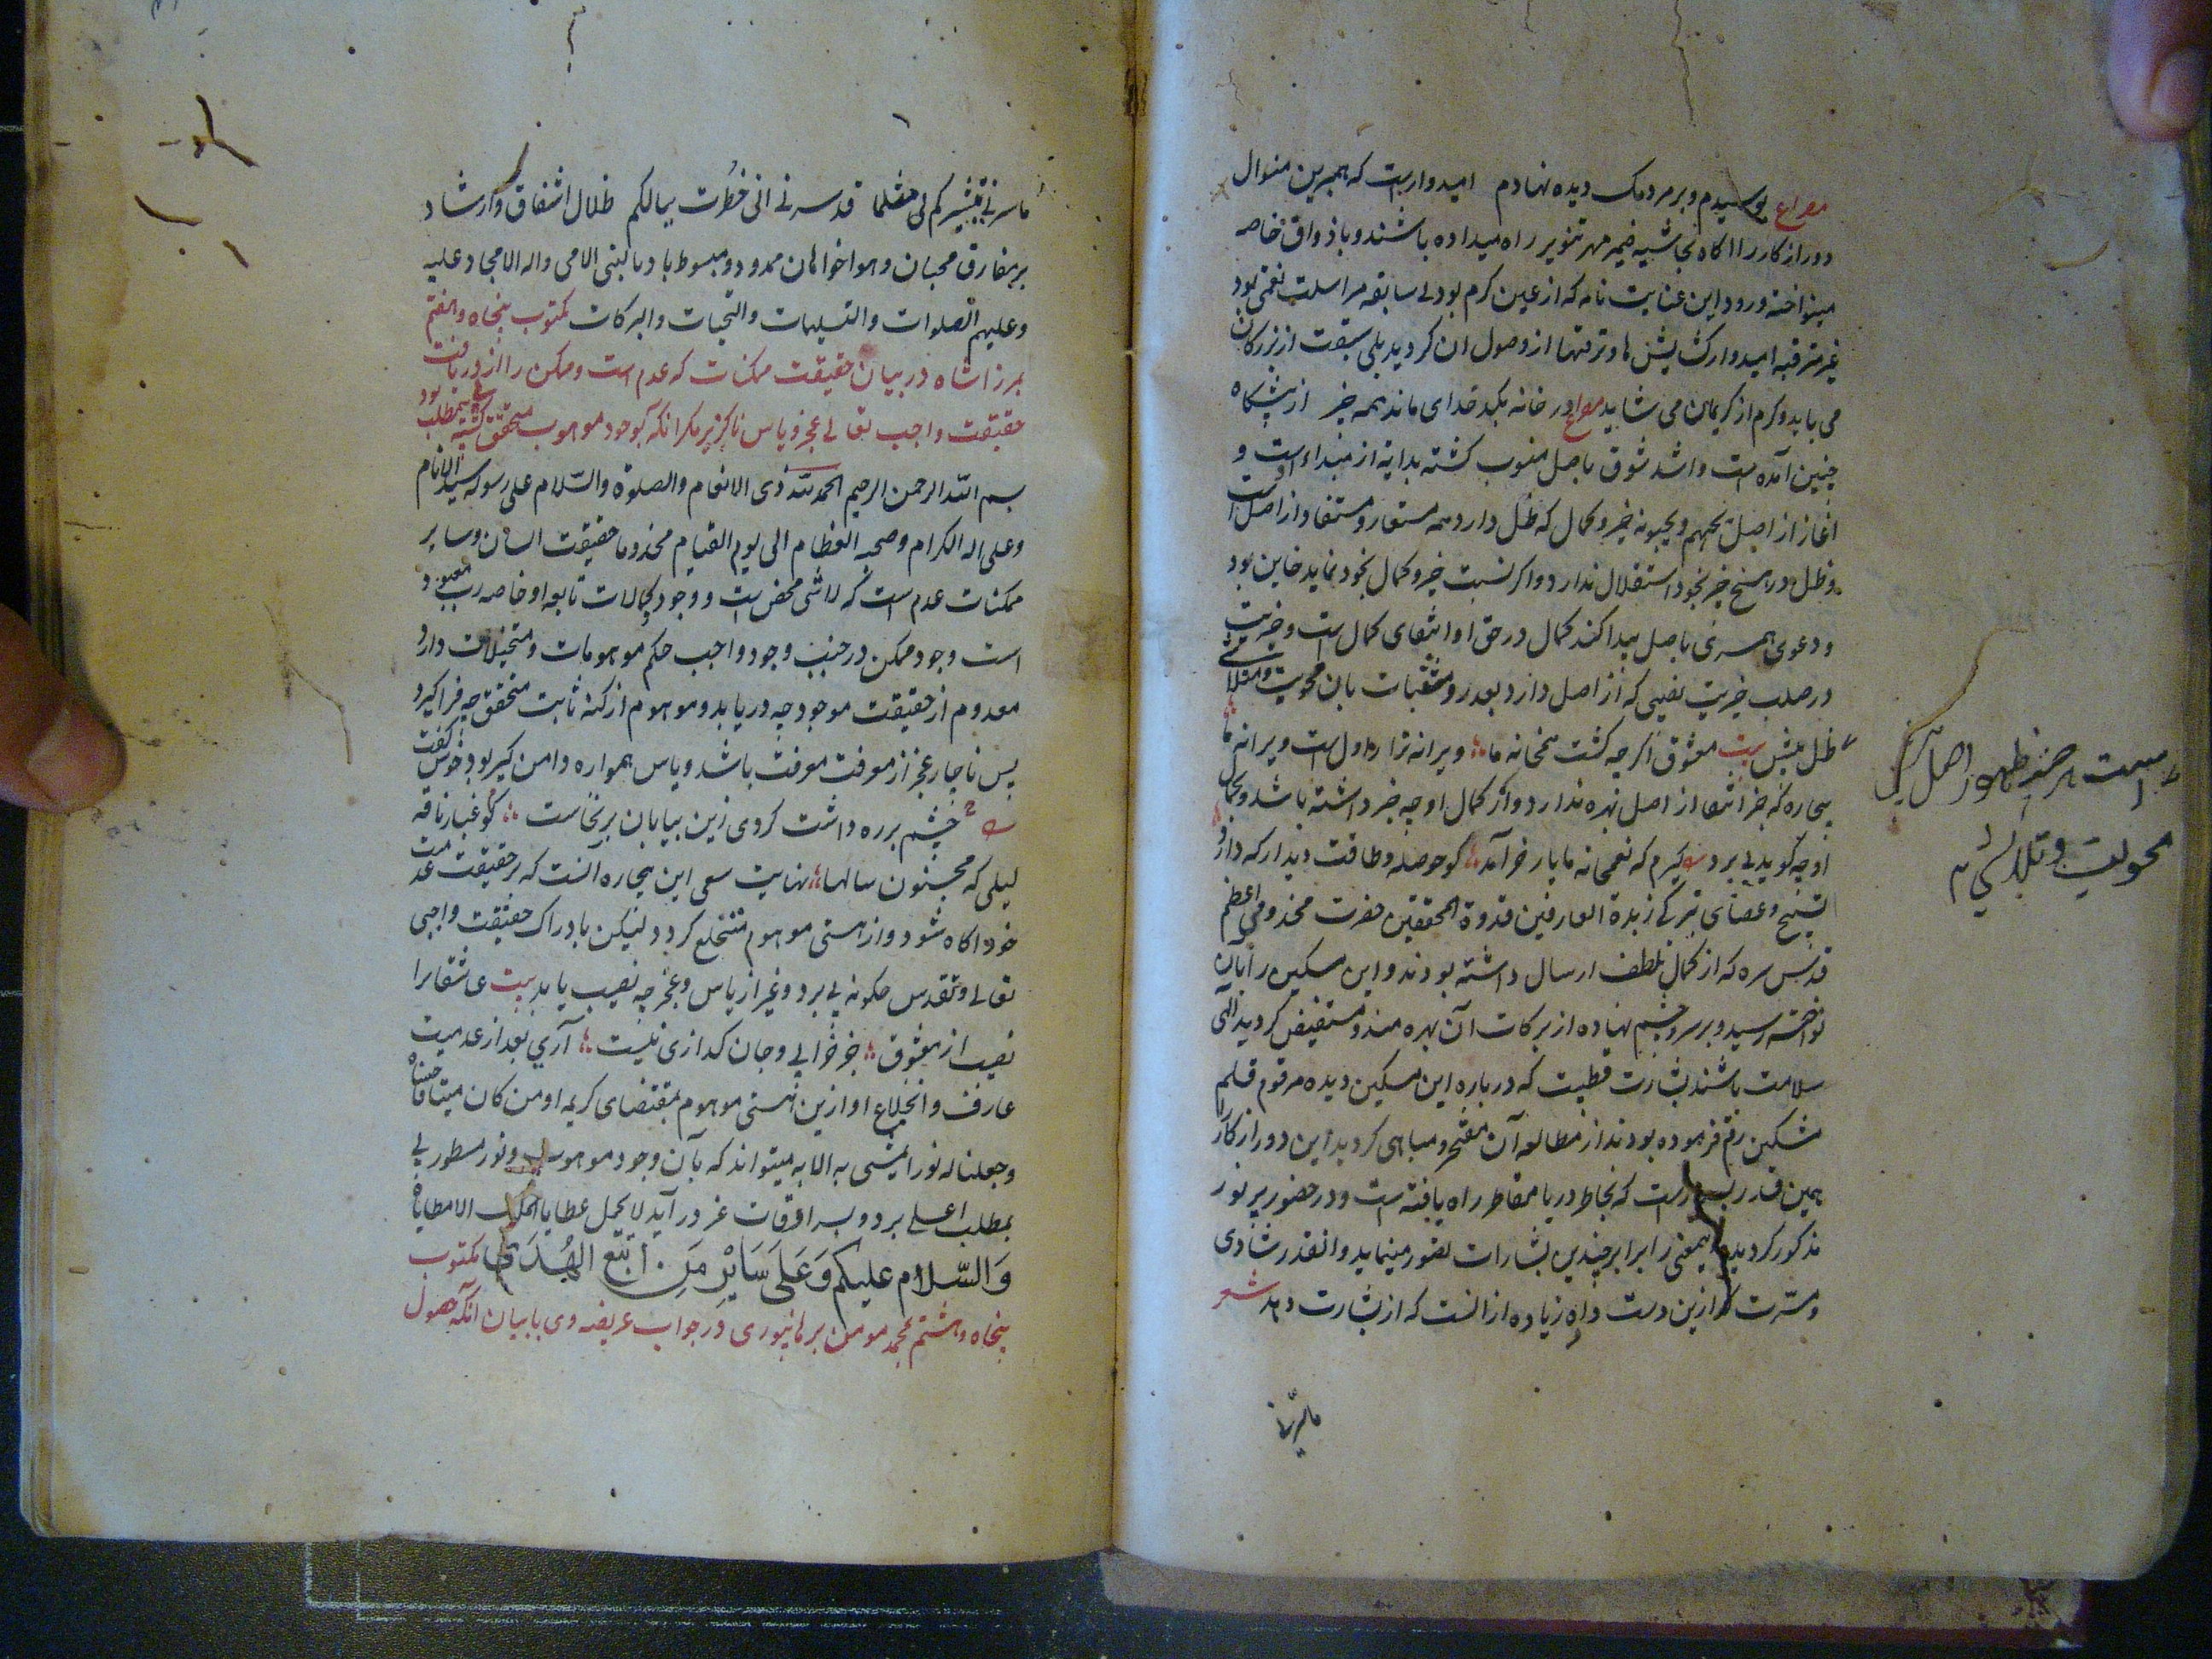 مصراع بوسیدم و بر مردمک دیده نهادم امیدوارست که همبرین منوال
دور از کار را گاه گاه بحاشیه ضمیر مهر تنویر راه میداده باشند و باذواق خاصه
مینواخته ورود این عنایت نامه که از عین کرم بود بی سابقه مراسلت نعمتی بود
غیر مترقبه امیدوار کشایشها و ترقیها از وصول آن کردید بلی سبقت از بزرکان
می باید و کرم از کریمان می شاید مصراع در خانه بکدخدای ماند همه چیز از پیشکاه
چنین آمده است و اشد شوق باصل منسوب کشته بدایة از مبداء است و
آغاز از اصل یحبهم و یحبونه خیر و کمال که ظل دارد همه مستعار و مستفاد از اصل است
و ظل در هیچ خیر بخود استقلال ندارد و اکر نسبت خیر و کمال بخود نماید خاین بود
و دعوی همسری باصل پیدا کند کمال در حق او انتفای کمال است و خیریت
در سلب خیریت نصیبی که از اصل دارد بعد
ظل بیش بیت معشوق اکر چه کشت همخانه ما ویرانه تر از اول است ویرانه ما
بیچاره که جز انتفا از اصل بهره ندارد و از کمال او چه خبر داشته باشد و بجمال
او چه کونه پی برد کیرم که نعمخانه ما یار خرآمد کو حوصله و طاقت دیدار که دارد
تسبیح و عصای تبرکی زبدة العارفین قدوة المحققین حضرت مخدومی اعظم
قدس سره که از کمال تلطف ارسال داشته بودند و این مسکین را بآن
نواخته رسید و بر سر و چشم نهاده از برکات آن بهره مند و مستفیض کردید الهی
سلامت باشند بشارت قطبیت که درباره این مسکین دیده مرقوم قلم
مشکین رقم فرموده بودند از مطالعه آن مفتخر و مباهی کردید این دور از کار را
همین قدر بس است که بخاطر دریا مقاطر راه یافته است و در حضور پر نور
مذکور کردیده اینمعنی را برابر چندین بشارات تصور مینماید و انقدر شادی
و مسرت که ازین دست داده زیاده از آنست که از بشارت دهد شعر
ما سرنی
محویت و تلاشی
ما سرنی قدسرنی انی خطرت ببالکم ظلال اشفاق و ارشاد
بر مفارق محبان و هواخواهان ممدود و مبسوط باد بالنبی الامی واله الامجاد علیه
وعلیهم الصلوات والتسلیمات والتحیات والبرکات مکتوب پنجاه و هفتم
بمرزا شاه در بیان حقیقت ممکنات که عدم است و ممکن را از دریافت
حقیقت واجب تعالی عجز و یاس ناکزیر مکر انکه بوجود موهوب متحقق کشته بمطلب رسد
بسم الله الرحمن الرحیم الحمد لله ذی الانعام والصلوة والسلام علی رسوله سید الانام
وعلی اله الکرام وصحبه العظام الی یوم القیام مخدوما حقیقت انسان و سایر
ممکنات عدم است که لاشی محض است و وجود و کمالات تابعه او خاصه رب معبود
است وجود ممکن در جنب وجود واجب حکم موهومات و متخیلات دارد
معدوم از حقیقت موجود چه دریابد و موهوم از کنه ثابت متحقق چه فرا کیرد
پس ناچار عجز از معرفت معرفت باشد و یاس همواره دامن کیر بود خوش کفت
چشم بر ره داشت کردی زین بیابان برنخاست کو غبار ناقه
لیلی که مجنون سالها نهایت سعی این بیچاره آنست که بر حقیقت عدمیت
خود آکاه شود و از هستی موهوم منخلع کردد لیکن بادراک حقیقت واجبی
تعالی و تقدس چکونه پی برد و غیر از یاس و عجز چه نصیب یابد بیت عاشقانرا
نصیب از معشوق جز خرابی و جان کدازی نیست آری بعد از عدمیت
عارف و انخلاع او ازین هستی موهوم بمقتضای کریمه اومن کان میتا فاحییناه
وجعلنا له نورا یمشی به الایه میتواند که بآن وجود موهوب و نور مسطور پی
بمطلب اعلی برد و بسرادقات عز درآید لا یحمل عطایا الملک الا مطایاه
وَالسّلام علیکم وَعَلی سَایرِ مَن اتّبَعَ الهُدی مکتوب
پنجاه و هشتم بمحمد مومن برهانپوری در جواب عریضه وی با بیان انکه حصول